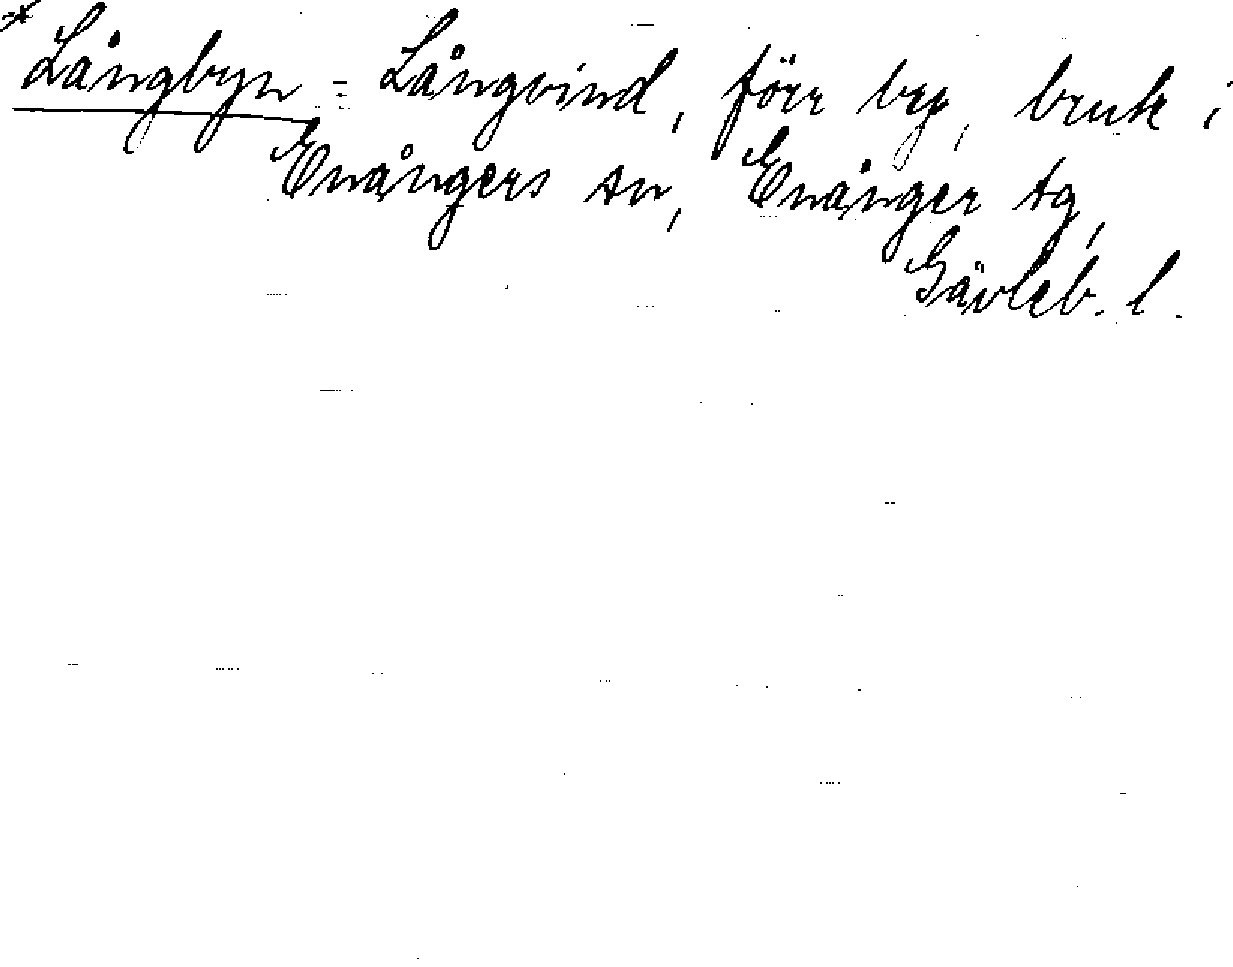 *Långbyn = Långvind, förr by, bruk i
Enångers sn, Enånger tg,
Gävleb. l.